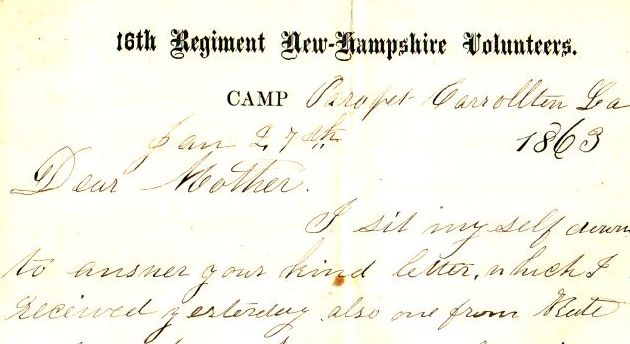 16th Regiment New-Hampshire Volunteers.
CAMP Parapet Carrollton La
Jan 27th 1863
Dear Mother.
I sit my self down
to answer your kind letter, which I
received yesterday also one from Kate